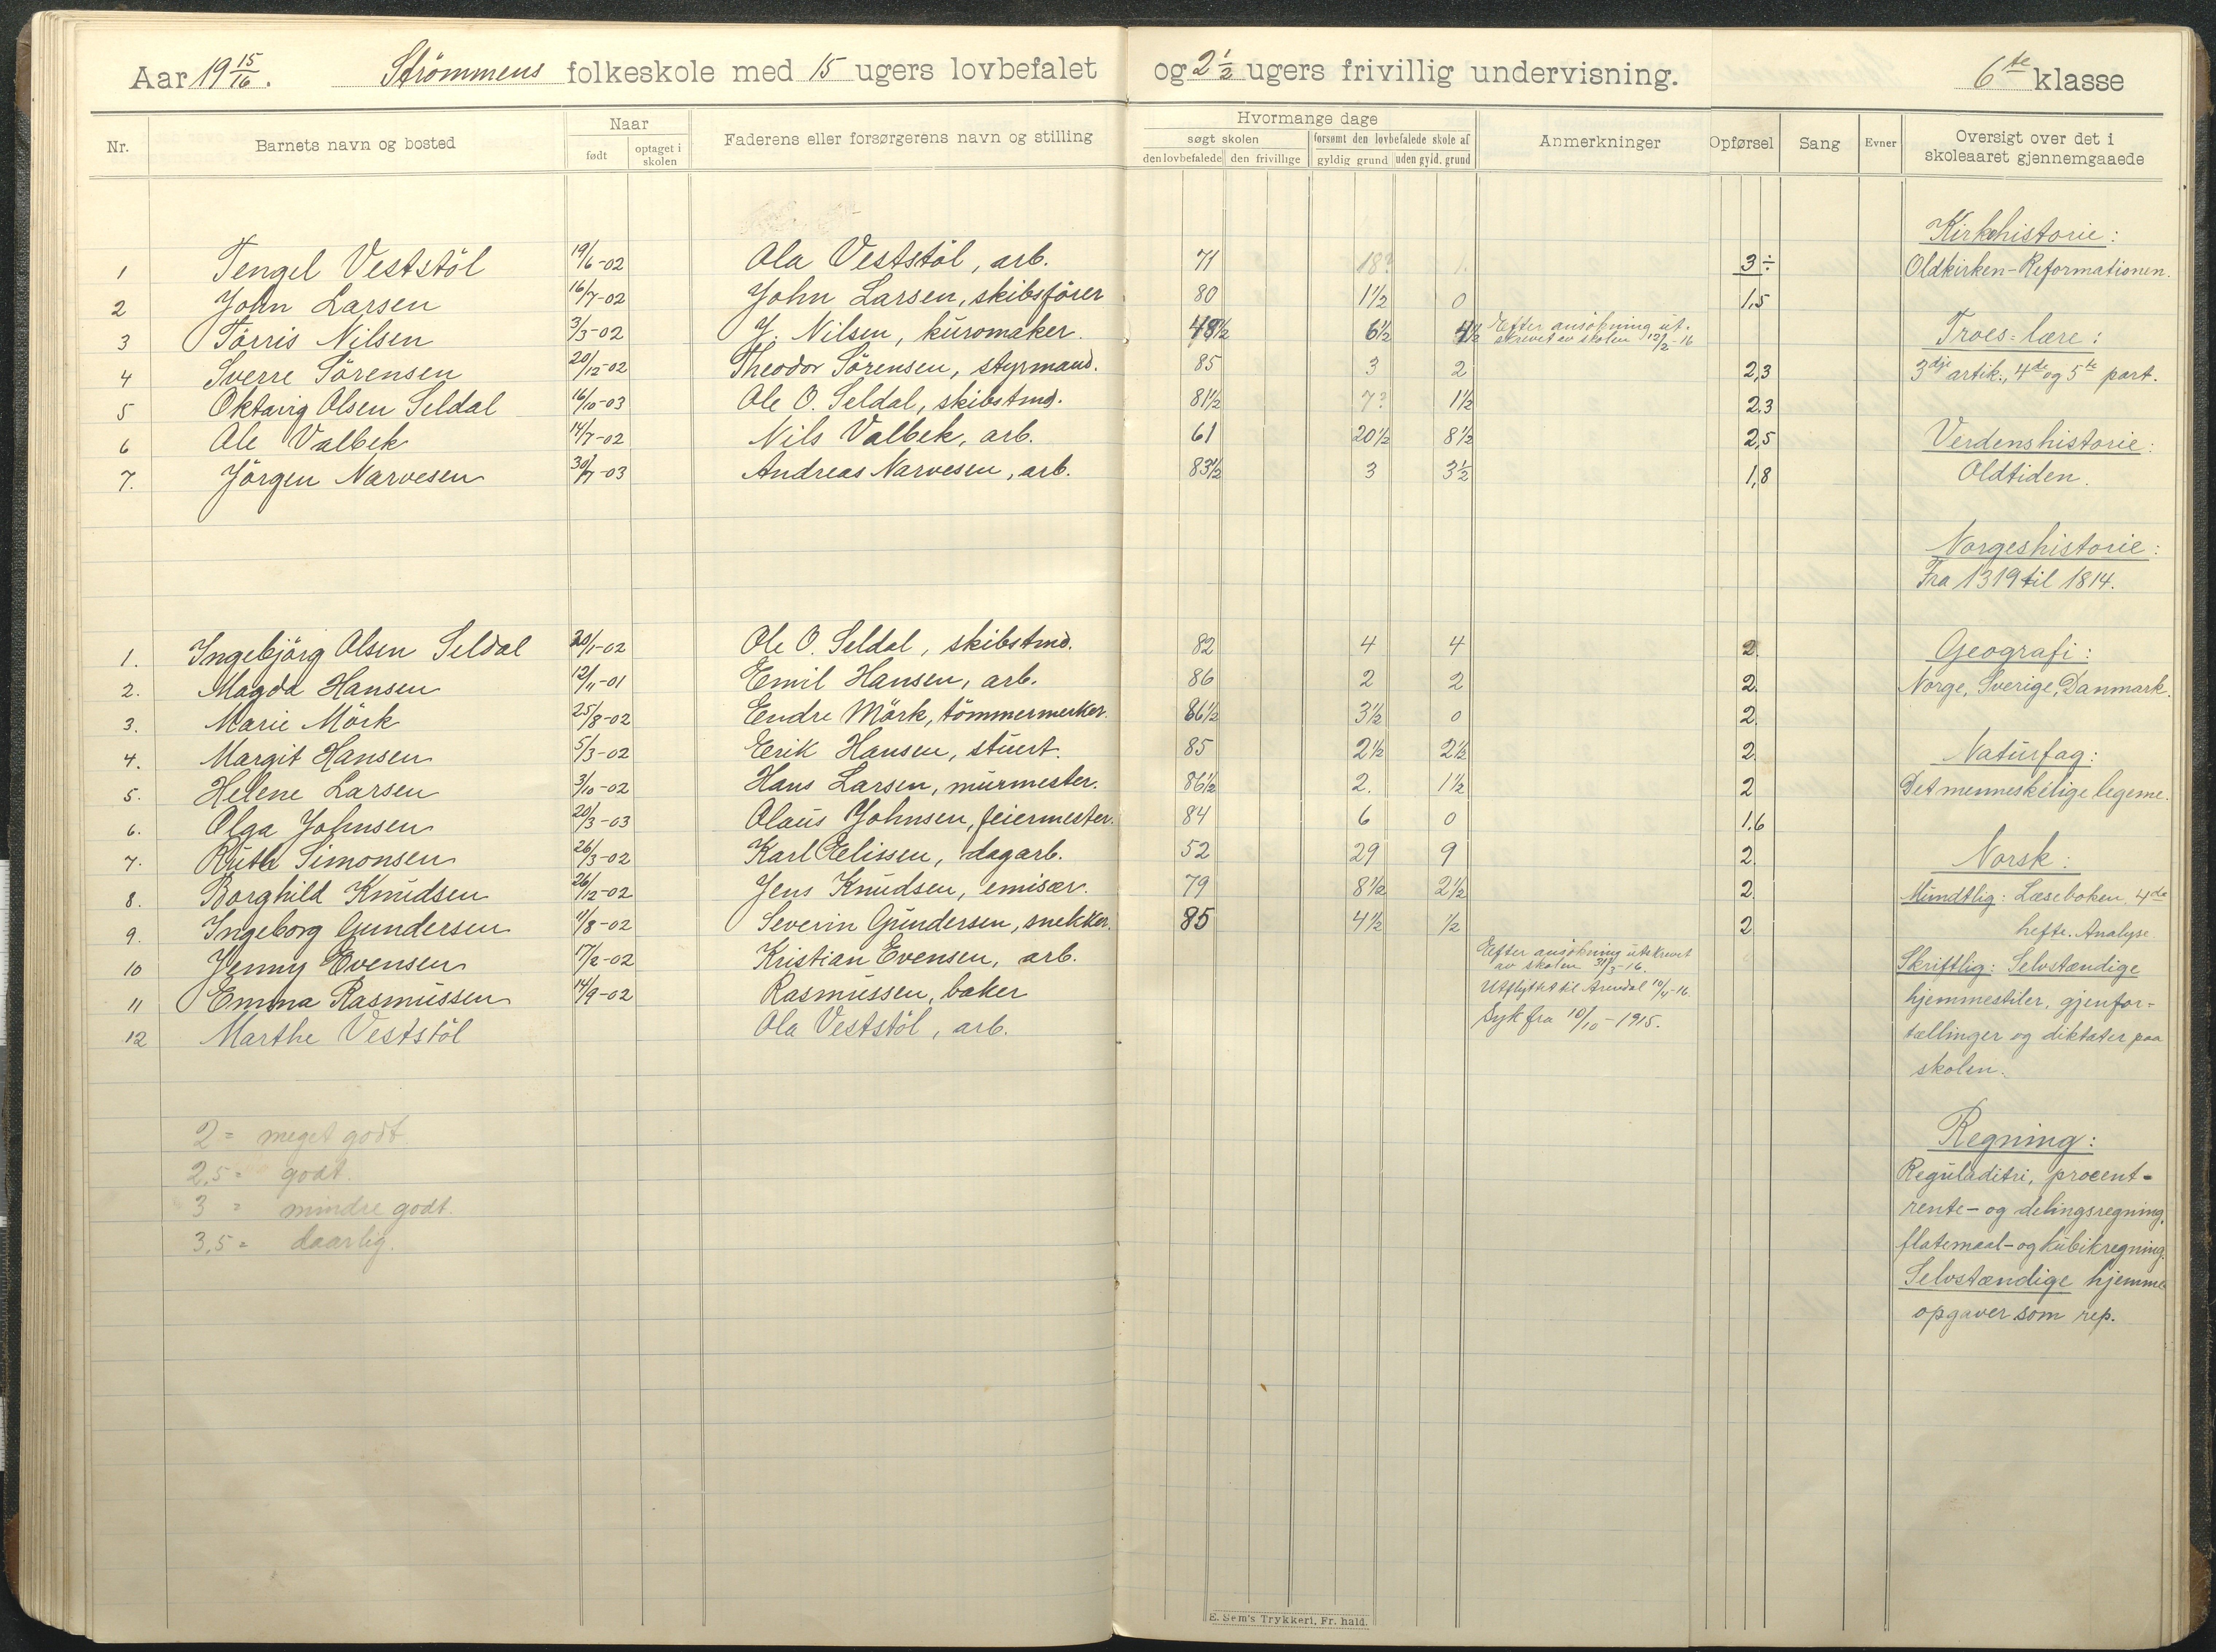 Aar 19 15/16. Strömmens folkeskole med 15 ugers lovbefalet og 2 1/2 ugers frivillig undervisning. 6te klasse
Nr. Barnets navn og bosted Naar født optaget i skolen Faderens eller forsørgerens navn og stilling Hvormange dage søgt skolen den lovbefalede den frivillige forsømt den lovbefalede skole af gyldig grund uden gyld. grund Anmerkninger Opførsel Sang Evner Oversigt over det i skoleaaret gjennemgaaede
Kirkehistorie:
1 Tengel Veststöl 19/6-02 Ola Veststöl, arb. 71 18? 1. 3÷ Oldkirken-Reformationen.
2 John Larsen 16/7-02 John Larsen, skibsförer 80 1 1/2 0 1,5
3 Törris Nilsen 3/3-02 J. Nilsen, kuromaker. 48 1/2 6 1/2 4 1/2 Efter ansökning ut- Troes-lære:
skrevet av skolen 12/2-16
4 Sverre Sörensen 20/12-02 Theodor Sörensen, styrmand. 85 3 2 2,3 3dje artik., 4de og 5te part.
5 Oktavig Olsen Seldal 16/10-03 Ole O. Seldal, skibstmd. 81 1/2 7? 1 1/2 2,3
6 Ole Valbek 14/7-02 Nils Valbek, arb. 61 20 1/2 8 1/2 2,5 Verdenshistorie:
7. Jörgen Narvesen 30/7-03 Andreas Narvesen, arb. 83 1/2 3 3 1/2 1,8 Oldtiden.
Norgeshistorie:
Fra 1319 til 1814.
1. Ingebjörg Olsen Seldal 20/1-02 Ole O. Seldal, skibstmd. 82 4 4 2. Geografi:
2. Magda Hansen 12/11-01 Emil Hansen, arb. 86 2 2 2. Norge, Sverige, Danmark.
3. Marie Mörk 25/8-02 Endre Mörk, tömmermerker. 86 1/2 3 1/2 0 2.
4. Margit Hansen 5/3-02 Erik Hansen, stuert. 85 2 1/2 2 1/2 2. Naturfag:
5. Helene Larsen 3/10-02 Hans Larsen, murmester. 86 1/2 2. 1 1/2 2 Det menneskelige legeme.
6. Olga Johnsen 20/3-03 Olaus Johnsen, feiermester. 84 6 0 1.6
7. Ruth Simonsen 26/3-02 Karl Eelissen, dagarb. 52 29 9 2. Norsk:
8. Borghild Knudsen 26/12-02 Jens Knudsen, emisær. 79 8 1/2 2 1/2 2. Mundtlig: Læseboken, 4de
9. Ingeborg Gundersen 11/8-02 Severin Gundersen, snekker. 85 4 1/2 1/2 2. hefte. Analyse.
10 Jenny Evensen 17/2-02 Kristian Evensen, arb. Efter ansökning utskrevet Skriftlig: Selvstændige
av skolen 31/3-16.
11 Emma Rasmussen 14/9-02 Rasmussen, baker Utflyttet til Arendal 10/4-16. hjemmestiler, gjenfor-
12 Marthe Veststöl Ola Veststöl, arb. Syk fra 10/10-1915. tællinger og diktater paa
skolen.
2 = meget godt. Regning:
2,5 = godt. Reguladitri, procent-
3 = mindre godt. rente- og delingsregning,
3,5 = daarlig. flatemaal- og kubikregning.
Selvstændige hjemme
opgaver som rep.
E. Sem's Trykkeri, Fr. hald.